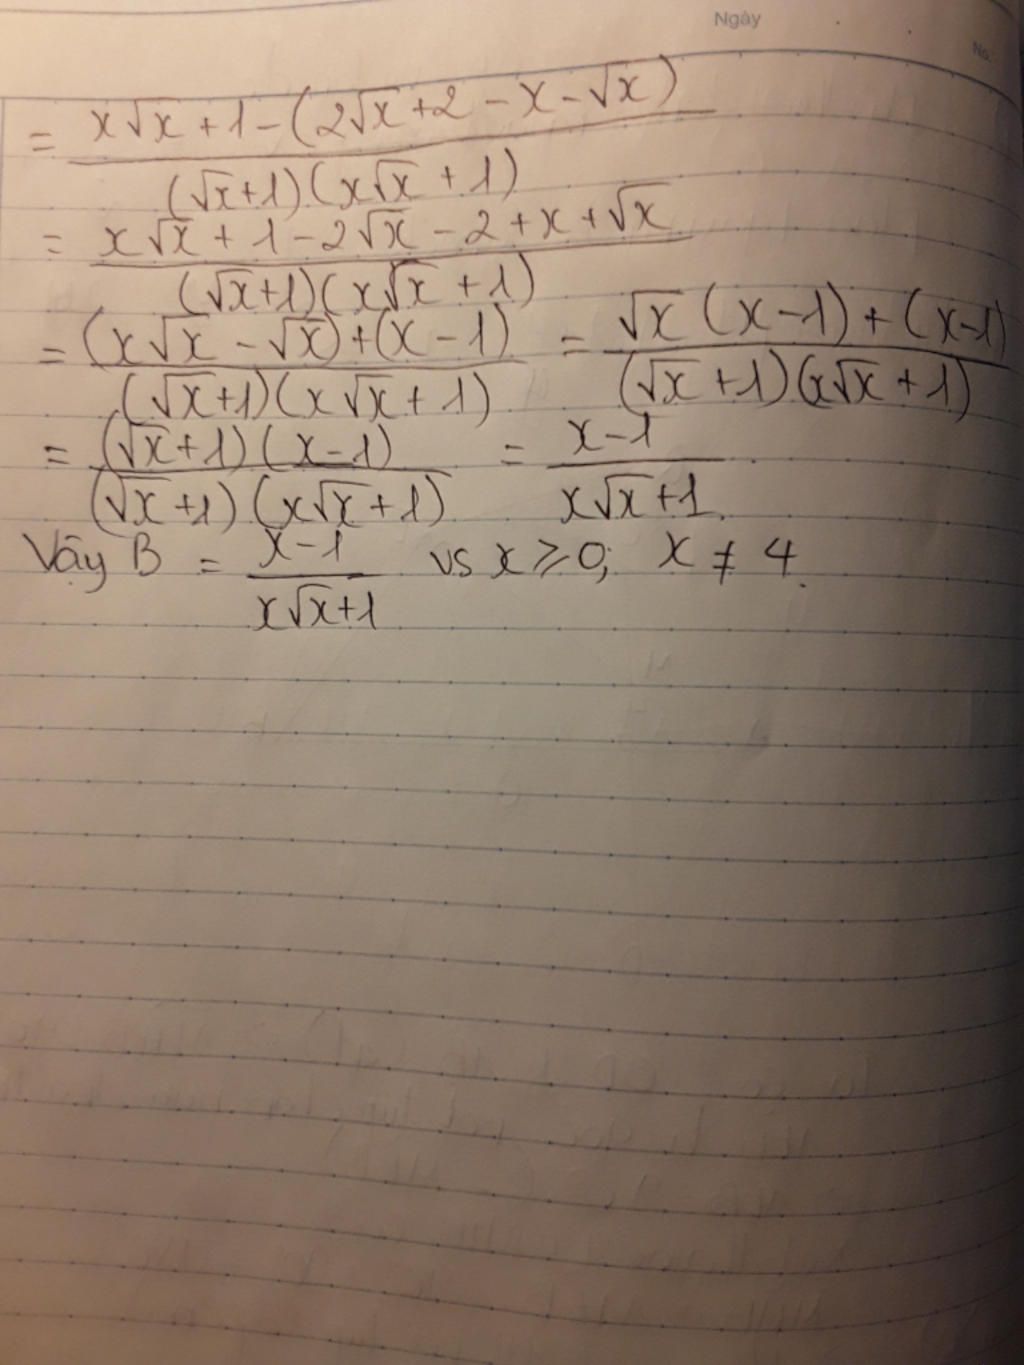 Ngày
No.
= x√x + 1 - (2√x + 2 - x - √x) / (√x + 1)(x√x + 1)
= x√x + 1 - 2√x - 2 + x + √x / (√x + 1)(x√x + 1)
= (x√x - √x) + (x - 1) / (√x + 1)(x√x + 1) = √x (x - 1) + (x - 1) / (√x + 1)(x√x + 1)
= (√x + 1)(x - 1) / (√x + 1)(x√x + 1) = x - 1 / x√x + 1.
Vậy B = x - 1 / x√x + 1 vs x ≥ 0; x ≠ 4.